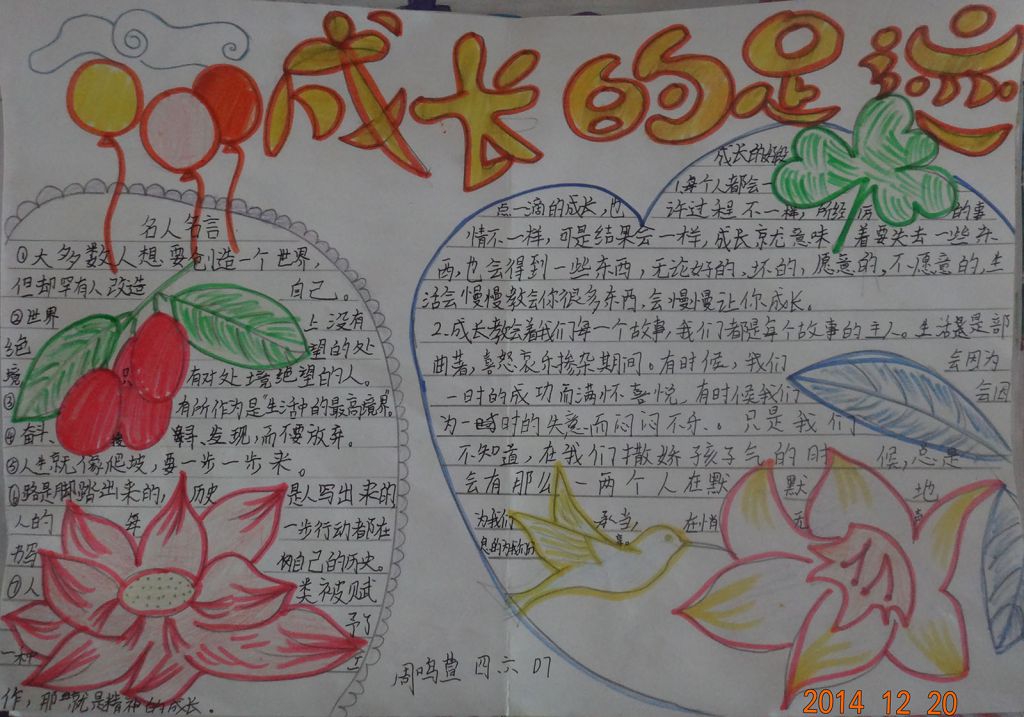 成长的足迹
名人名言
①大多数人想要创造一个世界，
但却罕有人改造 自己。
②世界 上没有
绝 望的处
境 只 有对处境绝望的人。
③ 有所作为是"生活中的最高境界。
④奋斗、 寻、发现，而不要放弃。
⑤人生就像爬坡，要一步一步来。
⑥路是脚踏出来的，历史 是人写出来的
人的 每 一步行动都在
书写 自己的历史。
⑦人 类被赋
予了
一种 工
作，那就是精神的成长。
成长的
1.每个人都会一
点一滴的成长，也 许过程不一样，所经 的事
情不一样，可是结果会一样，成长就意味 着要失去一些东
西，也会得到一些东西，无论好的，坏的，愿意的，不愿意的，生
活会慢慢教会你很多东西，会慢慢让你成长。
2.成长教会着我们每一个故事，我们都是每个故事的主人。生活总是部
曲著，喜怒哀乐掺杂期间。有时候，我们 会因为
一时的成功而满怀喜悦，有时候我们 会因
为一时的失意而闷闷不乐。只是我们
不知道，在我们撒娇孩子气的时 候，总是
会有那么一两个人在默 默 地
为我们 承当，
周鸣萱 四六 07
2014 12 20